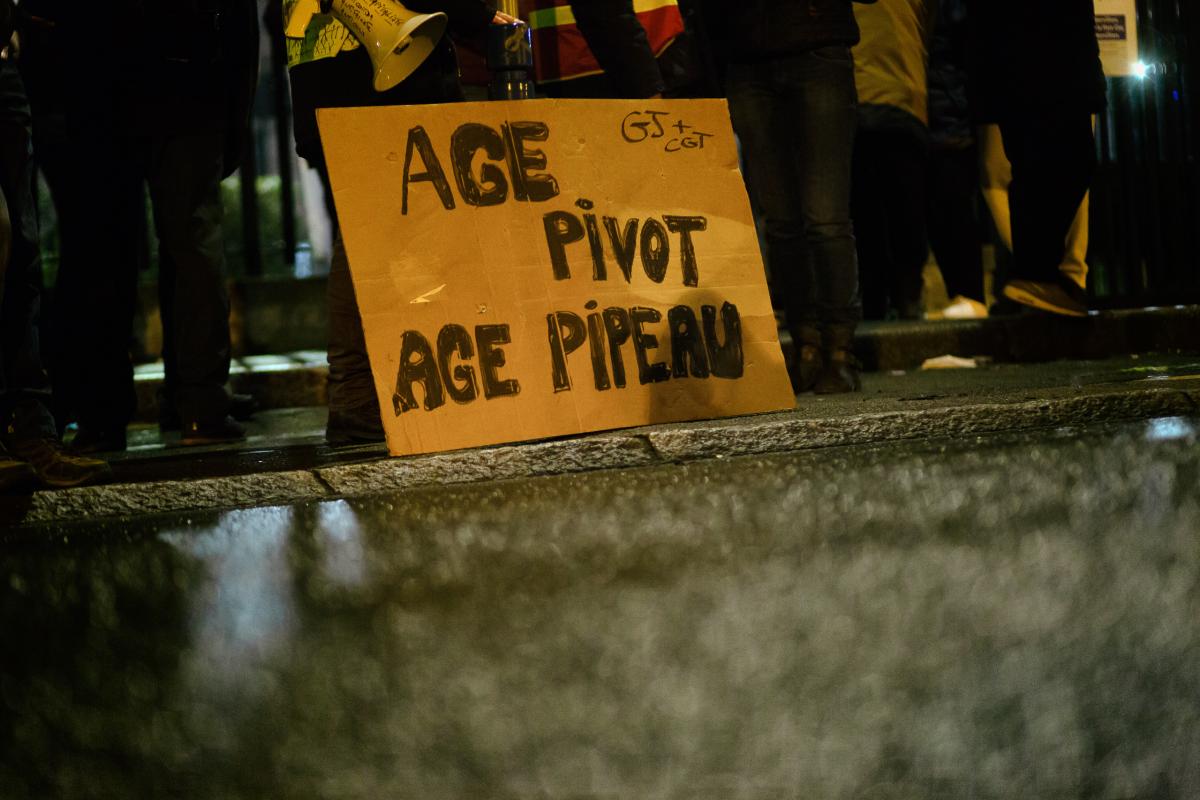 AGE
GJ +
CGT
PiVOT
AGE PiPEAU